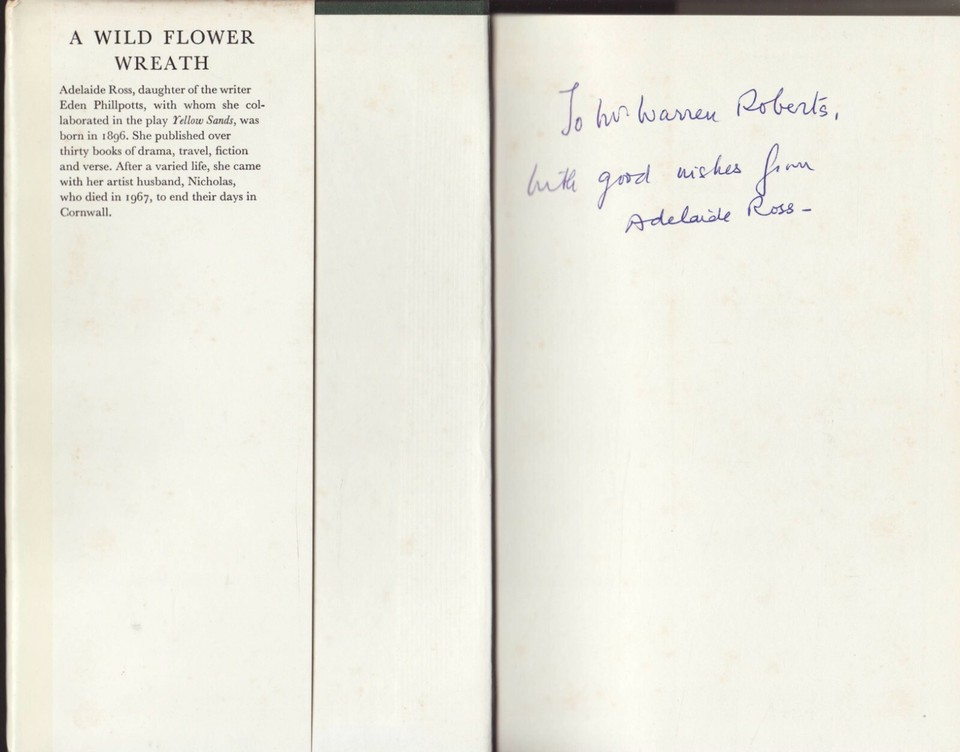 A WILD FLOWER
WREATH
Adelaide Ross, daughter of the writer
Eden Phillpotts, with whom she col-
laborated in the play Yellow Sands, was
born in 1896. She published over
thirty books of drama, travel, fiction
and verse. After a varied life, she came
with her artist husband, Nicholas,
who died in 1967, to end their days in
Cornwall.
To Mr Warren Roberts,
With good wishes from
Adelaide Ross –